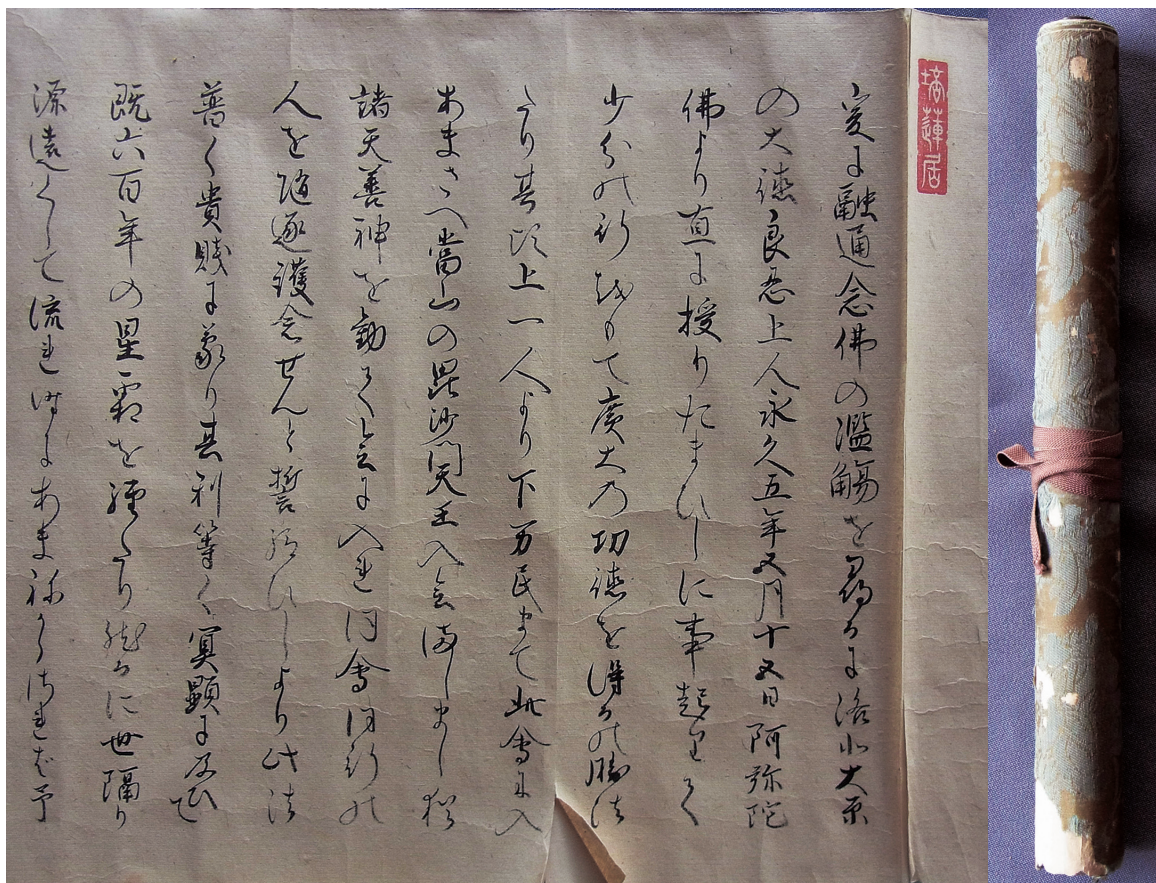 摘蓮居
爰に融通念佛の濫觴を尋るに洛北大原
の大徳良忍上人永久五年五月十五日阿弥陀
佛より直に授りたまひしに事起りて
少分の行をもて廣大の功徳を得るの勝法
なり其頃上一人より下万民まて此會に入
あまさへ當山の毘沙門天王入会ましまし
諸天善神を勧て会に入れ同會同行の
人を随逐護念せんと誓給ひしより此法
普く貴賤に蒙り其利等く冥顕に及ひて
既六百年の星霜を経たり然るに世隔り
源遠くして流れ時にあまねからされば予